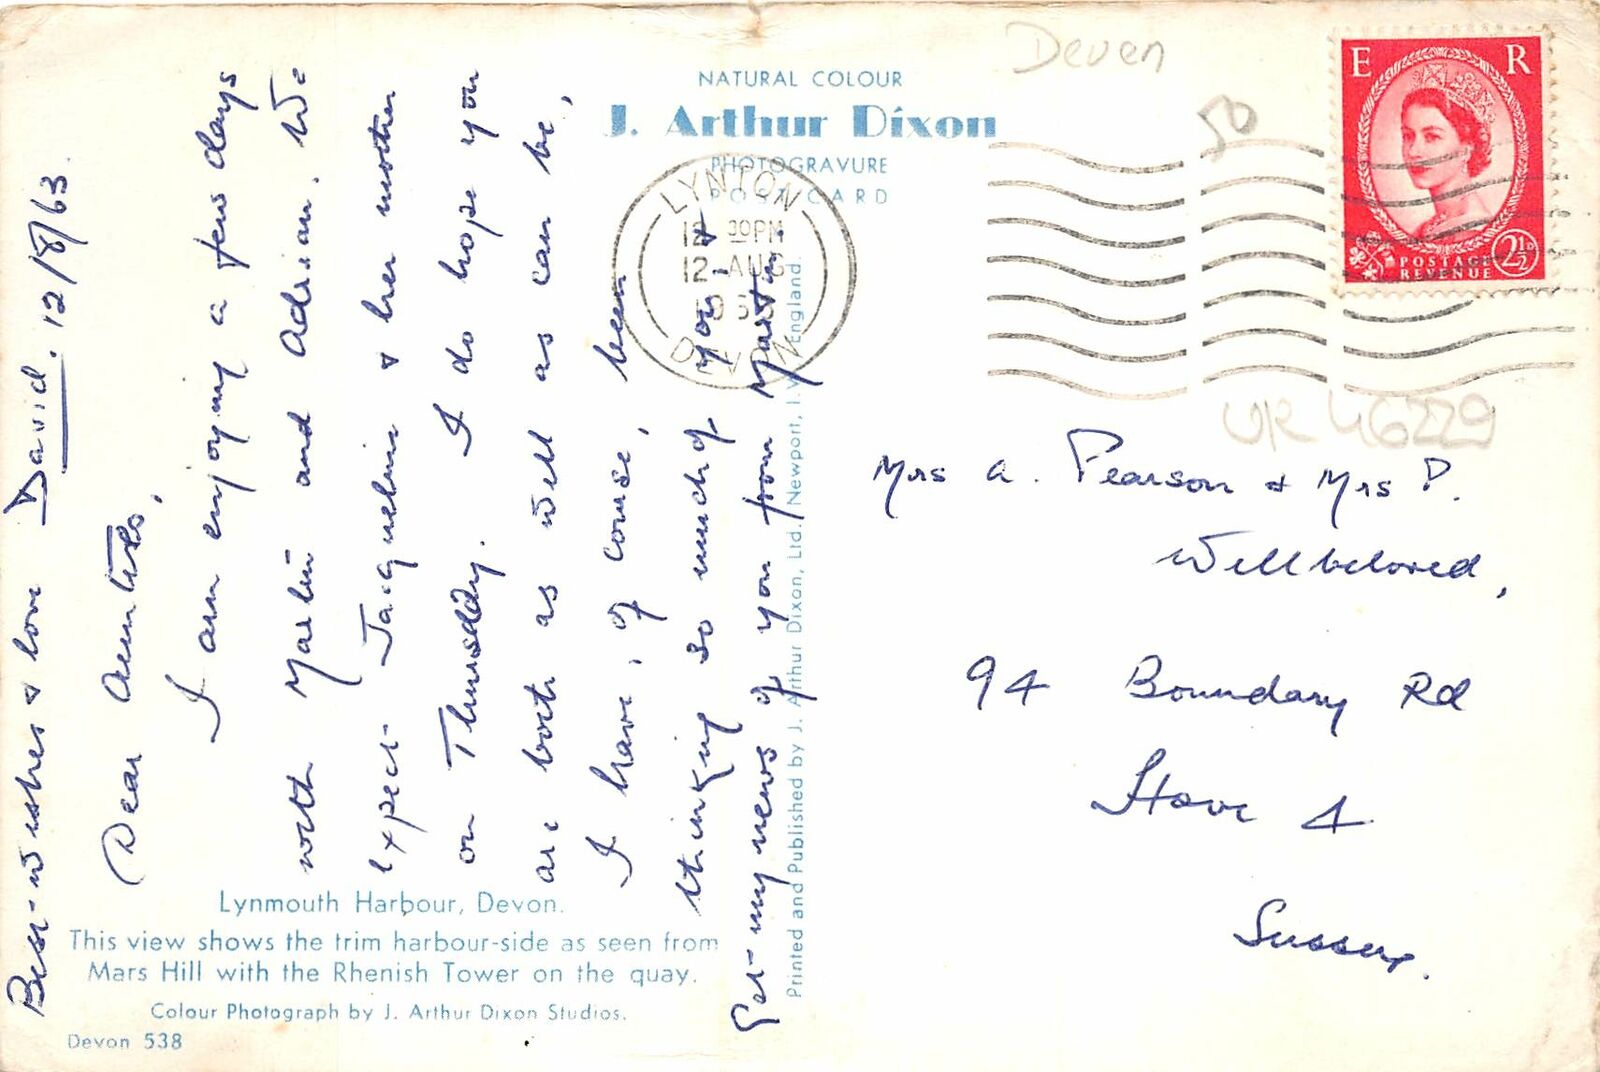 NATURAL COLOUR
J. Arthur Dixon
PHOTOGRAVURE
POST CARD
Deven
50
E R
POSTAGE
REVENUE
2½D
LYNTON
12 30PM
12 AUG
1963
DEVON
UK 46229
12/8/63.
Dear Aunties,
I am enjoying a few days
with Martin and Adrian. We
expect Jacqueline & her mother
on Thursday. I do hope you
are both as well as can be,
I have, of course, been
thinking so much of you &
get my news of you from Martin.
Best wishes & love David.
Mrs A. Pearson & Mrs P.
Wellbeloved,
94 Boundary Rd
Hove 4
Sussex.
Printed and Published by J. Arthur Dixon, Ltd. Newport, I.W. England.
Lynmouth Harbour, Devon.
This view shows the trim harbour-side as seen from
Mars Hill with the Rhenish Tower on the quay.
Colour Photograph by J. Arthur Dixon Studios.
Devon 538